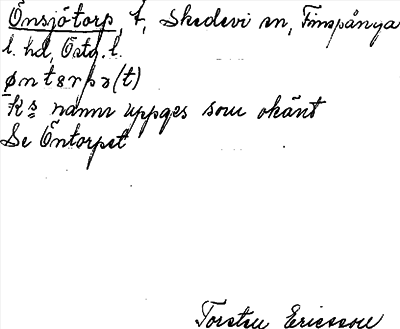 Önsjötorp, t, Skedevi sn, Finspånga
l. hd, Östg. l.
øntərpə(t)
K:s namn uppges som okänt
Se Öntorpet
Torsten Ericsson